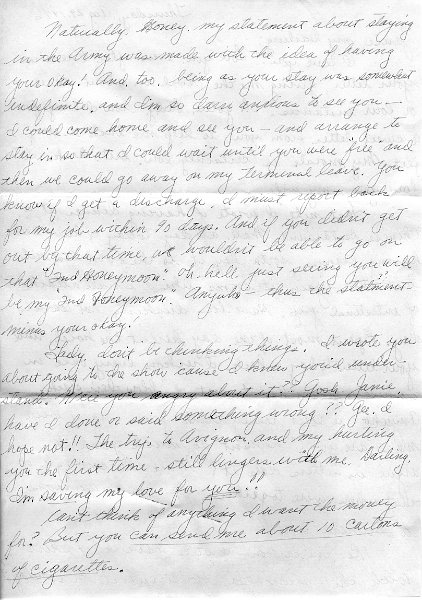 Naturally, Honey, my statement about staying
in the Army was made with the idea of having
your okay! And, too, being as your stay was somewhat
indefinite, and I'm so darn anxious to see you —
I could come home and see you — and arrange to
stay in so that I could wait until you were free and
then we could go away on my terminal leave. You
know if I get a discharge, I must report back
for my job within 90 days. And if you didn't get
out by that time, we wouldn't be able to go on
that "2nd Honeymoon." Oh, hell, just seeing you will
be my 2nd Honeymoon." Anyway — thus the statement —
minus your okay.
Lady, don't be thinking things. I wrote you
about going to the show cause I knew you'd under-
stand. Were you angry about it? Gosh, Janie,
have I done or said something wrong?? Ye, I
hope not!! The trip to Avignon, and my hurting
you the first time — still lingers with me, Darling.
I'm saving my love for you!!
Can't think of anything I want the money
for? But you can send me about 10 cartons
of cigarettes.